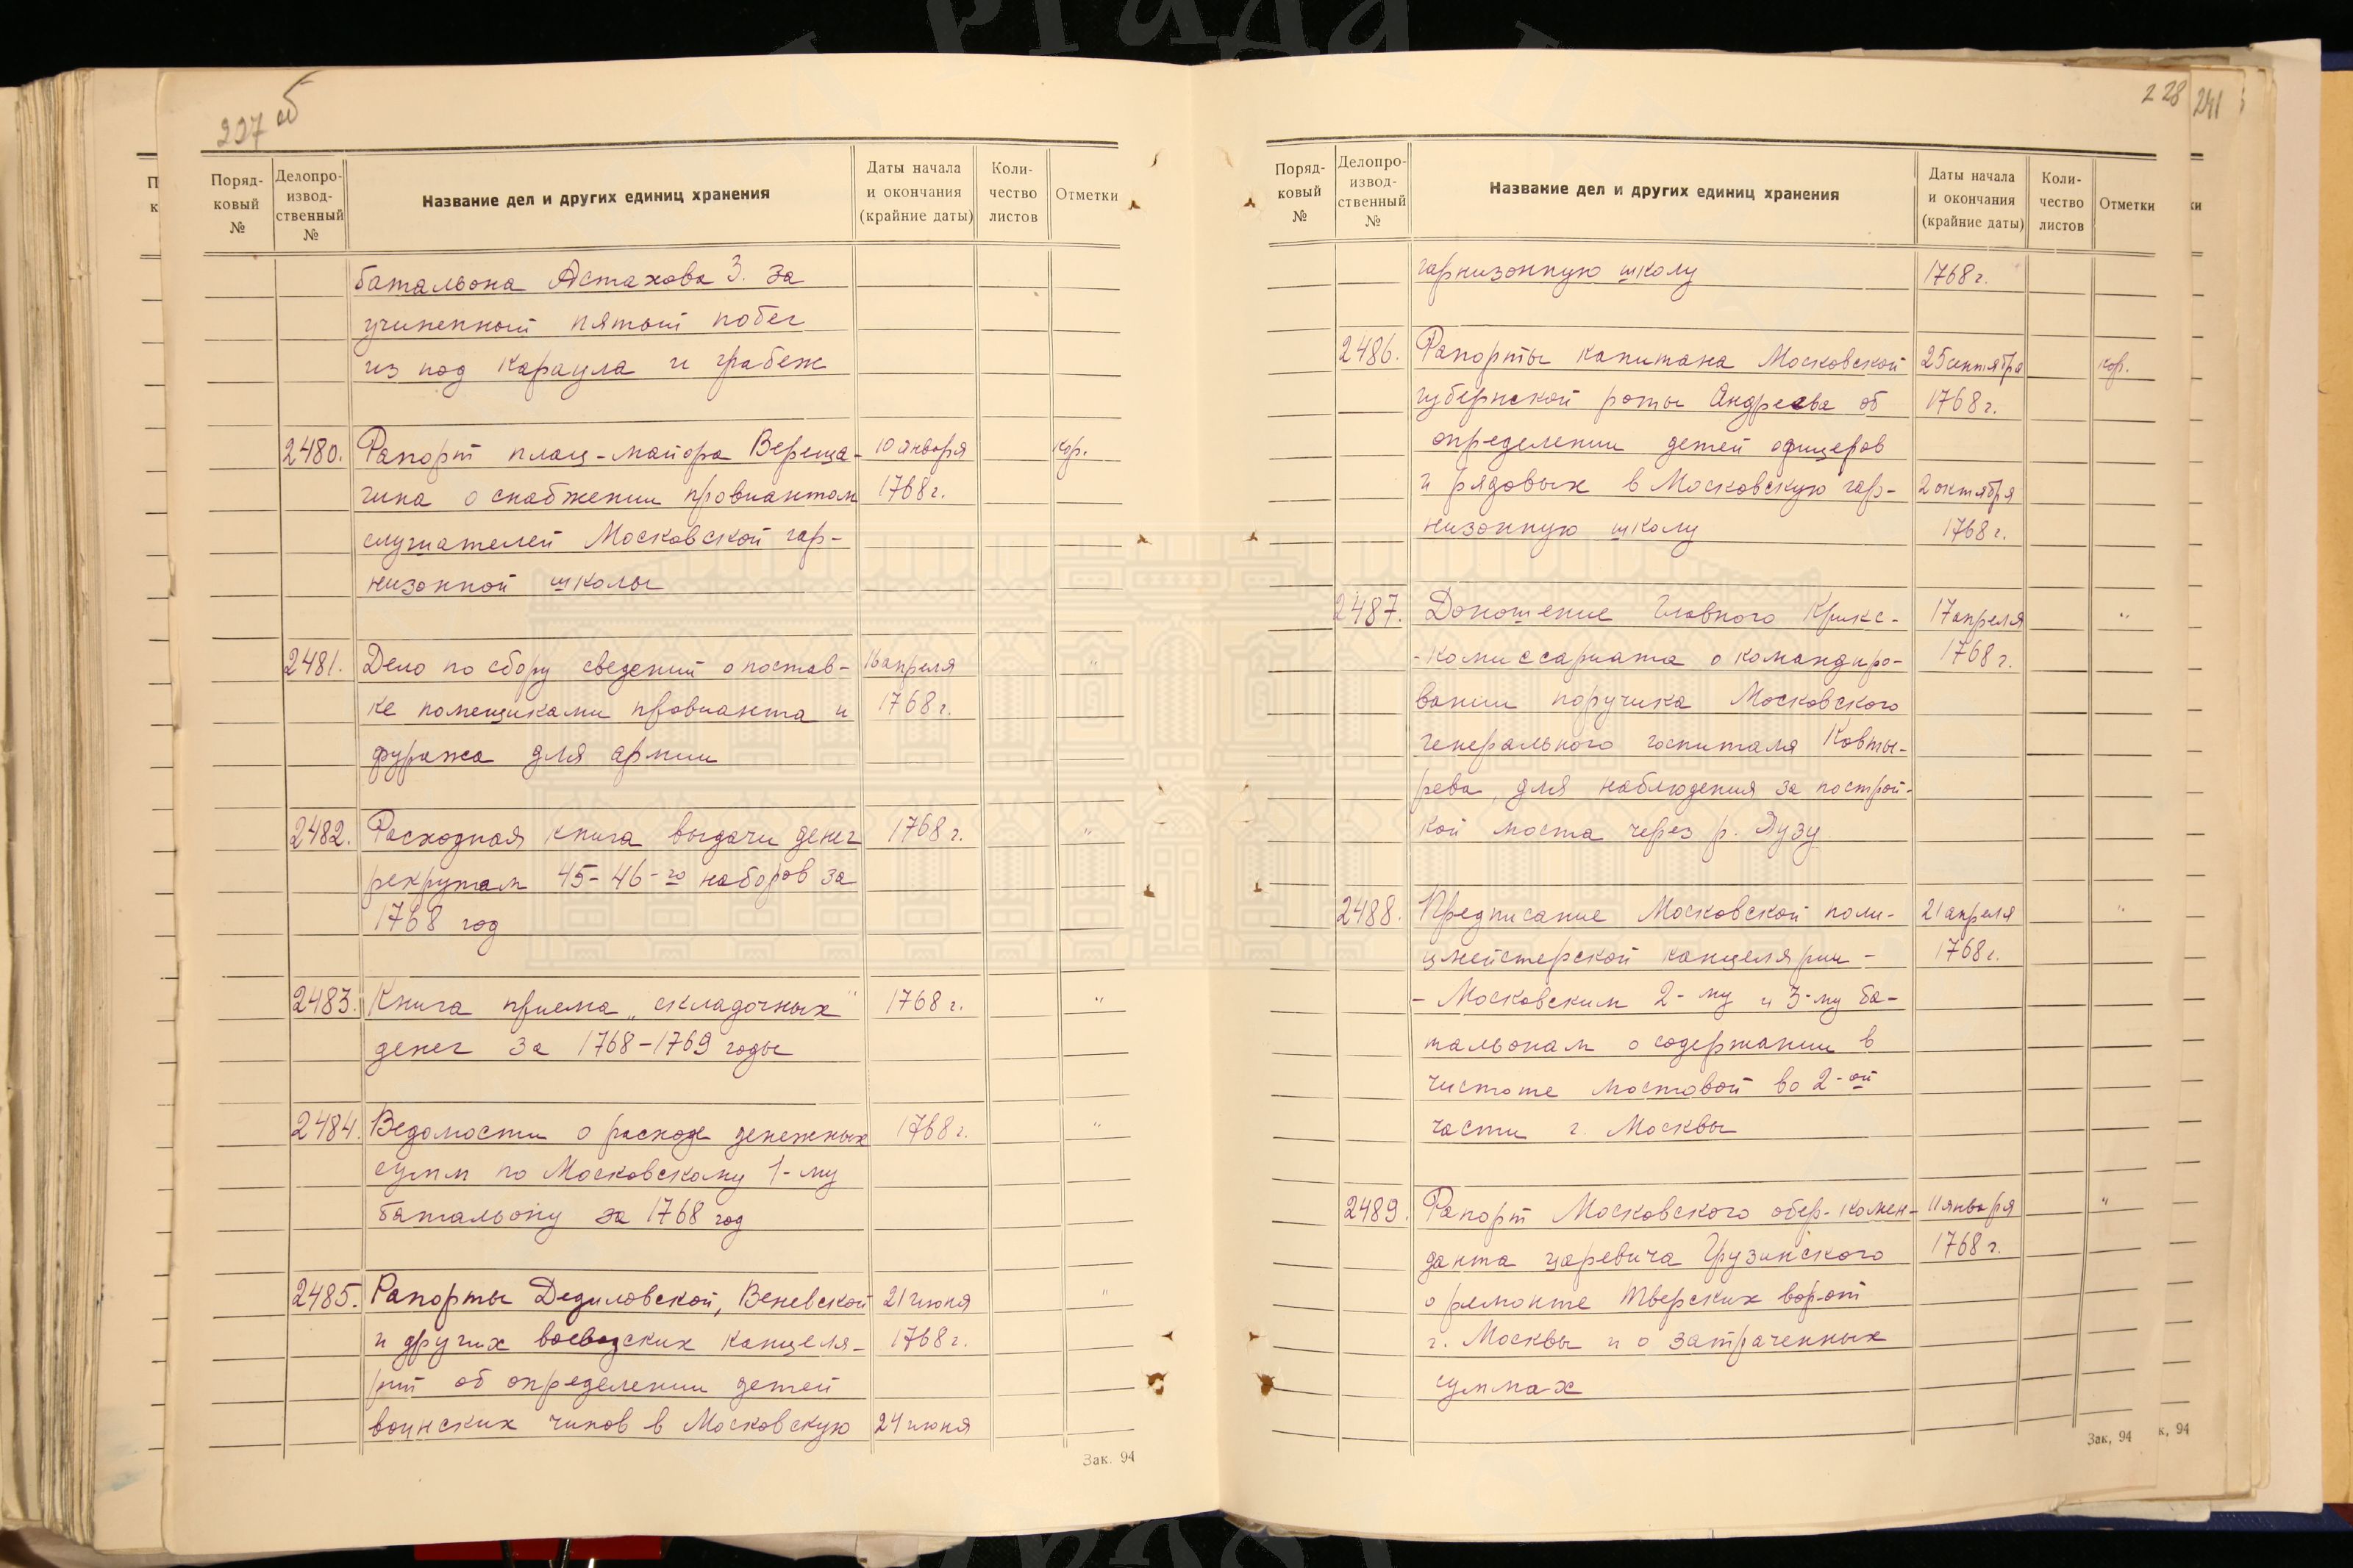 227 об
Поряд-
ковый
№
Делопро-
извод-
ственный
№
Название дел и других единиц хранения
Даты начала
и окончания
(крайние даты)
Коли-
чество
листов
Отметки
батальона Астахова З. за
учиненный пятый побег
из под караула и грабеж
2480. Рапорт плац-майора Вереща- 10 января кор.
гина о снабжении провиантом 1768 г.
слушателей Московской гар-
низонной школы
2481. Дело по сбору сведений о постав- 16 апреля "
ке помещиками провианта и 1768 г.
фуража для армии
2482. Расходная книга выдачи денег 1768 г. "
рекрутам 45-46-го наборов за
1768 год
2483. Книга приема „складочных" 1768 г. "
денег за 1768-1769 годы
2484. Ведомости о расходе денежных 1768 г. "
сумм по Московскому 1-му
батальону за 1768 год
2485. Рапорты Дедиловской, Веневской 21 июня "
и других воеводских канцеля- 1768 г.
рий об определении детей
воинских чинов в Московскую 24 июня
Зак. 94
228
241
Поряд-
ковый
№
Делопро-
извод-
ственный
№
Название дел и других единиц хранения
Даты начала
и окончания
(крайние даты)
Коли-
чество
листов
Отметки
гарнизонную школу 1768 г.
2486. Рапорты капитана Московской 25 сентября кор.
губернской роты Андреева об 1768 г.
определении детей офицеров
и рядовых в Московскую гар- 2 октября
низонную школу 1768 г.
2487. Доношение Главного Крикс- 17 апреля "
-комиссариата о командиро- 1768 г.
вании поручика Московского
генерального госпиталя Ковты-
рева, для наблюдения за построй-
кой моста через р. Яузу
2488. Предписание Московской поли- 21 апреля "
цмейстерской канцелярии - 1768 г.
- Московским 2-му и 3-му ба-
тальонам о содержании в
чистоте мостовой во 2-ой
части г. Москвы
2489. Рапорт Московского обер-комен- 11 января "
данта царевича Грузинского 1768 г.
о ремонте Тверских ворот
г. Москвы и о затраченных
суммах
Зак. 94
к. 94